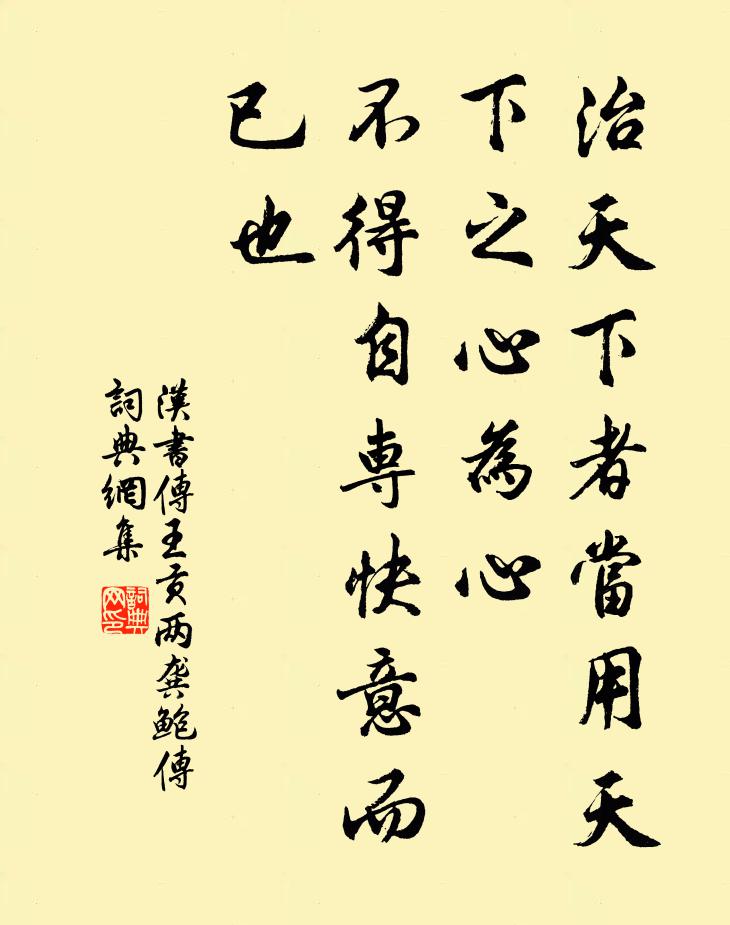 治天下者當用天
下之心為心
不得自専快意而
已也
漢書傳王貢两龔鲍傳
詞典網集
詞典
网印